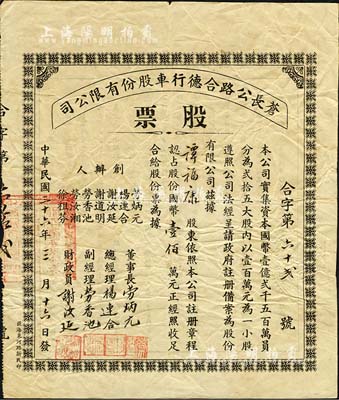 上海陽明拍賣
蒼長公路合德行車股份有限公司
股票
合字第六十弍號
本公司實集資本國幣壹億弍千五百萬員
分為弍拾五大股內以壹百萬元為一小股
遵照公司法經呈請政府註册備案為股份
有限公司茲據
譚福康股東依照本公司註册章程
認占股份國幣壹佰萬元正經照收足
合給股票為據
創辦人
勞炳元
楊連合
謝汝延
謝道明
勞香池
勞汝湘
徐祖芬
董事長勞炳元
總經理楊連合
副經理勞香池
財政員謝汝延
中華民國三十六年三月十六日發
合字第
號